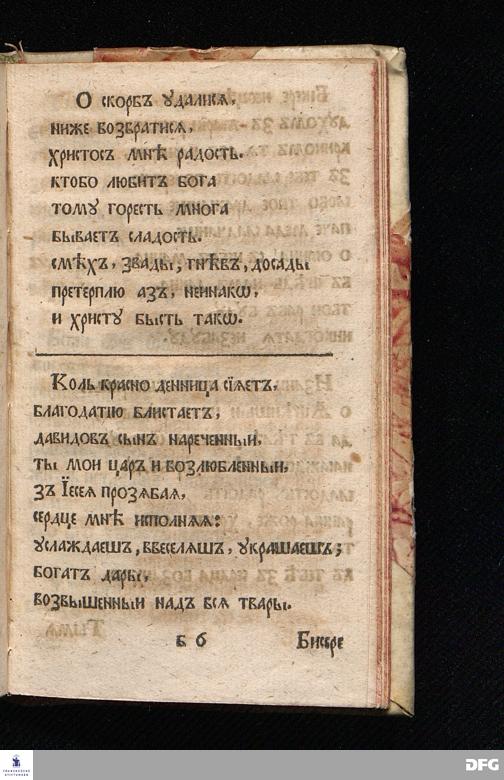 О скорбъ удалися,
ниже возвратися,
христосъ мнѣ радость.
ктобо любитъ бога
тому горесть многа
бываетъ сладость.
смѣхъ, звады, гнѣвъ, досады
претерплю азъ, неинакѡ,
и христу бысть такѡ.
Коль красно денница сїяетъ,
благодатїю блистаетъ,
давидовъ сынъ нареченныи,
ты мои царъ и возлюбленныи,
зъ Їесея прозябая,
сердце мнѣ исполняя:
услаждаешъ, ввеселяшъ, украшаешъ;
богатъ дары,
возвышенныи надъ вся твары.
б 6 Бисере
DFG